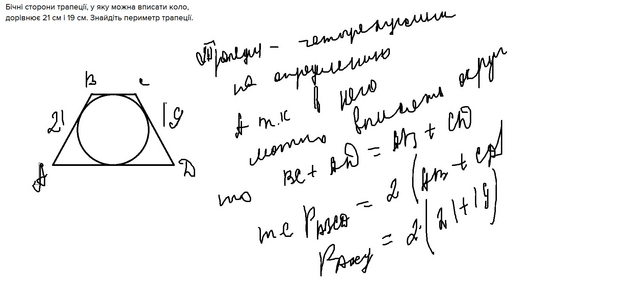 Бічні сторони трапеції, у яку можна вписати коло,
дорівнює 21 см і 19 см. Знайдіть периметр трапеції.
B C
21 19
A D
Трапеция - четырехугольник
по определению
А т.к в него
можно вписать округ
то BC + AD = AB + CD
те PABCD = 2 (AB + CD)
PABCD = 2 (21+19)